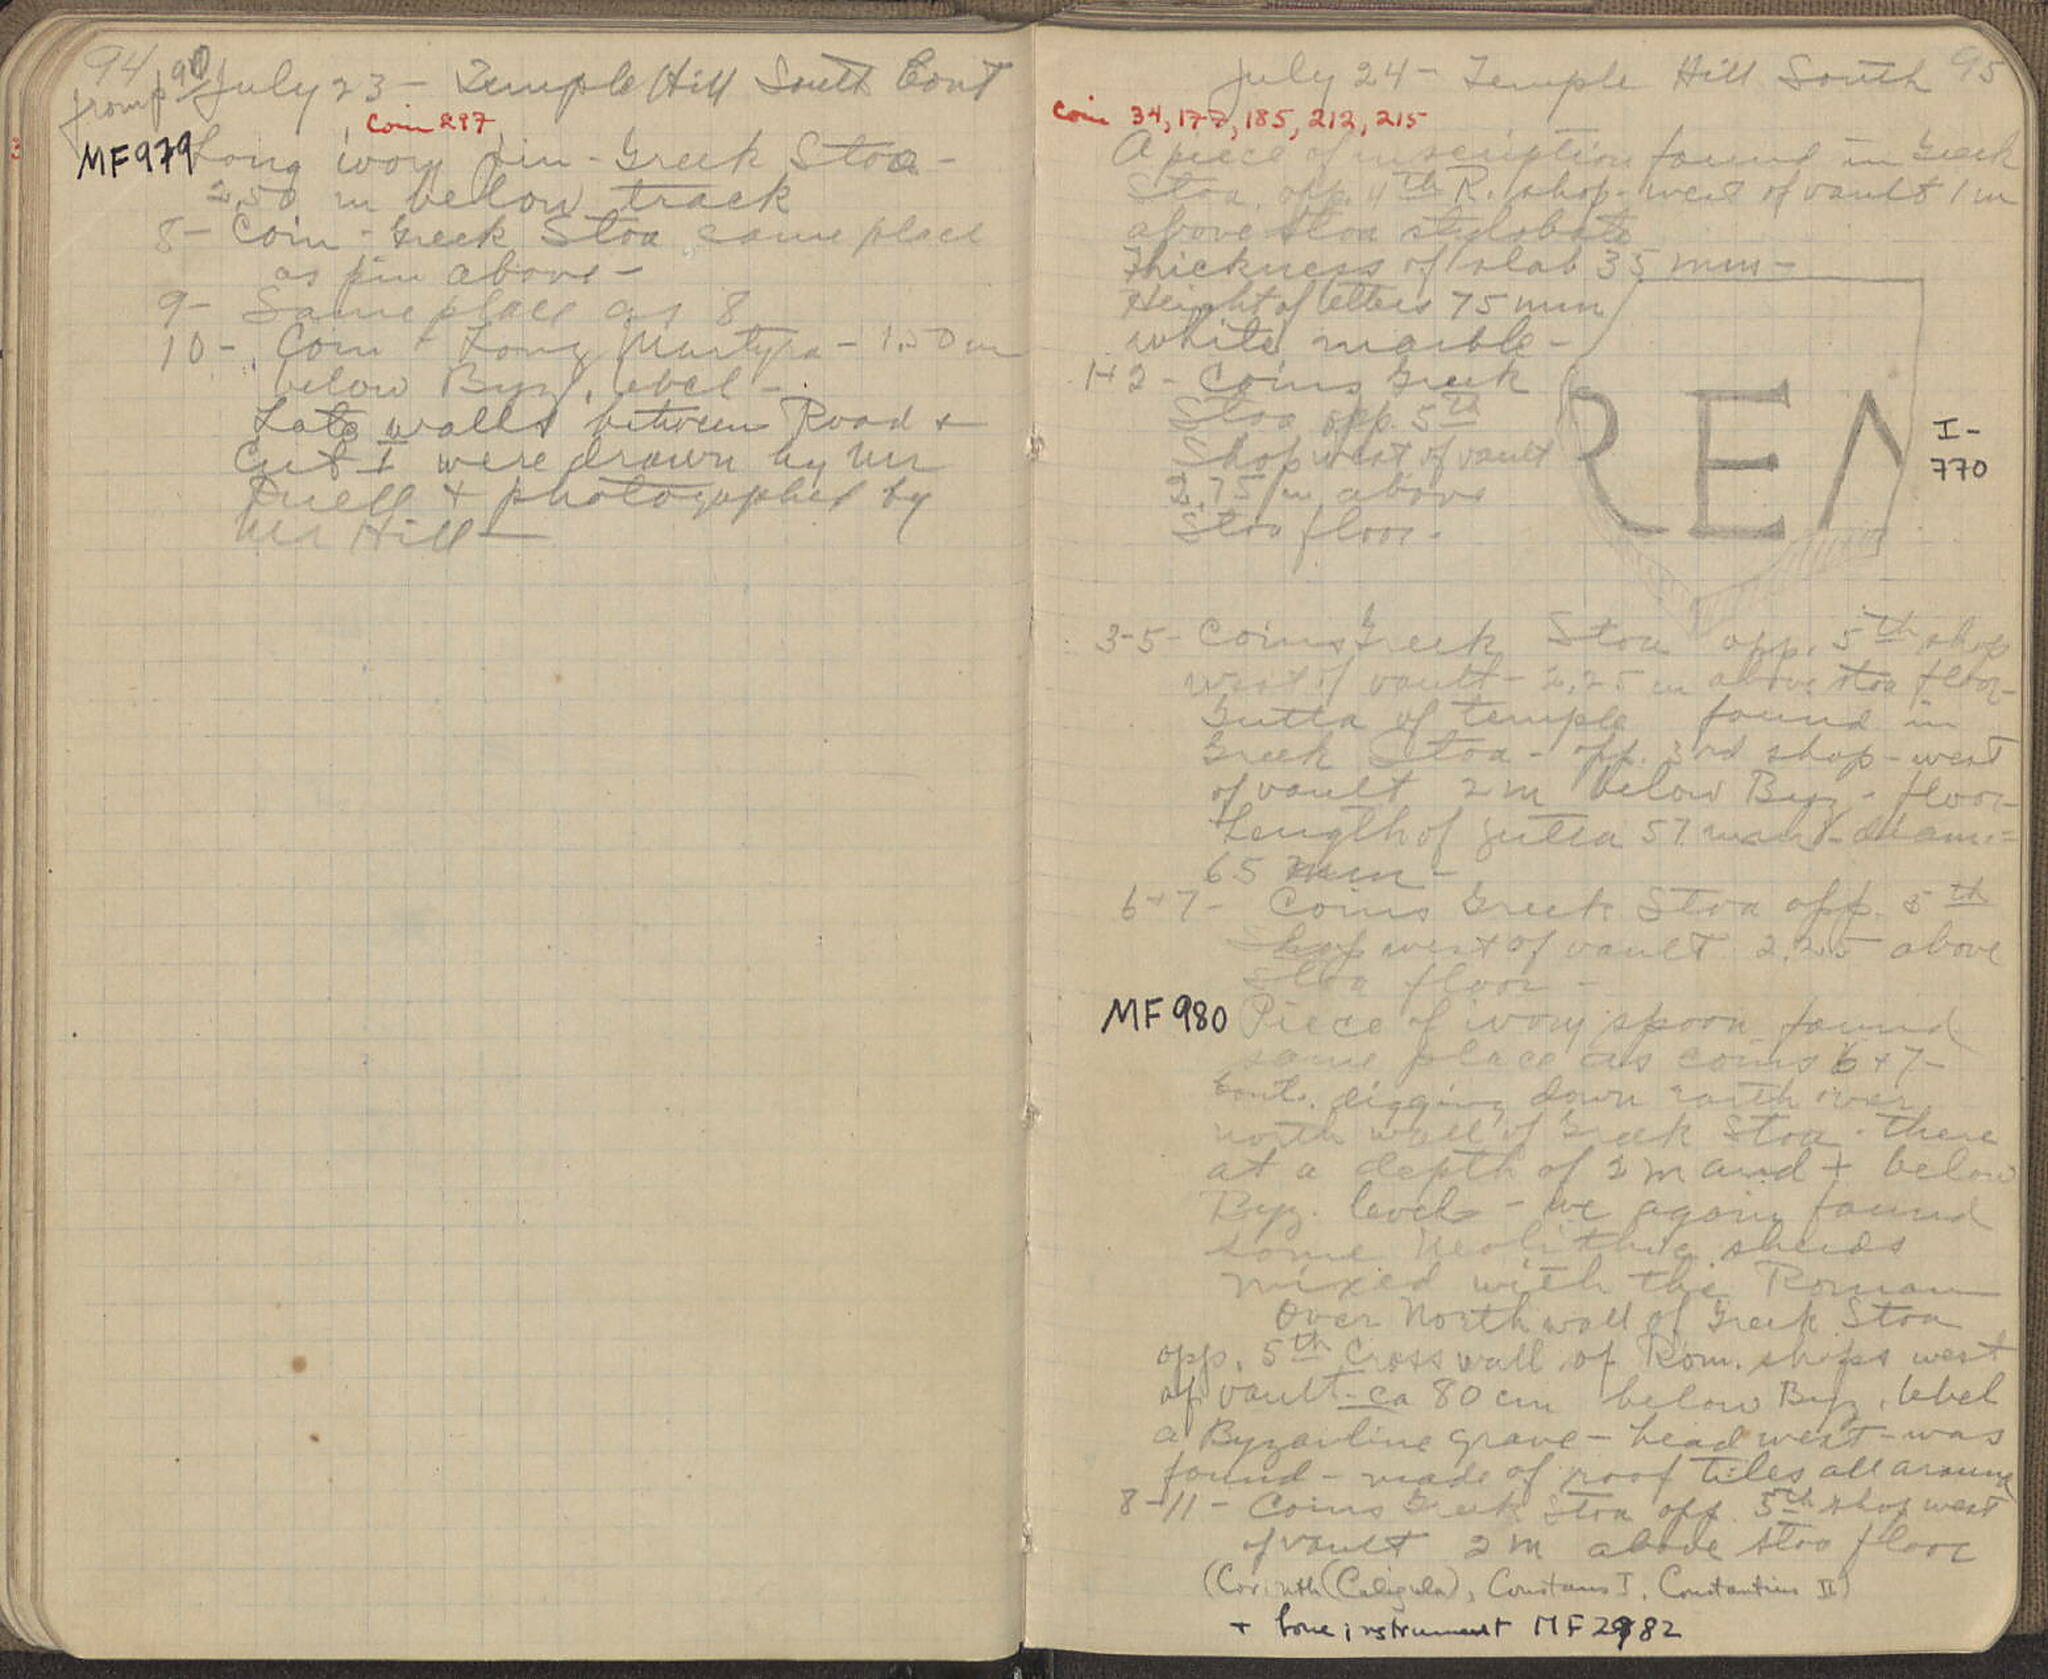 94
from p 90 July 23 - Temple Hill South Cont
Coin 297
MF979 Long ivory pin - Greek Stoa -
2.50 m below track
8 - Coin - Greek Stoa same place
as pin above -
9 - Same place as 8
10 - Coin - Long Martyra - 1.50 m
below Byz. level -
Late walls between Road +
Cut I were drawn by Mr
Duell + photographed by
Mr Hill -
July 24 - Temple Hill South 95
Coin 34, 177, 185, 212, 215
A piece of inscription found in Greek
Stoa, opp. 4th R. shop - west of vault 1 m
above stoa stylobate
Thickness of slab 35 mm -
Height of letters 75 mm
White marble -
REN
I-
770
1+2 - Coins Greek
Stoa opp. 5th
Shop west of vault
2.75 m above
Stoa floor -
3-5 - Coins Greek Stoa opp. 5th shop
west of vault - 2.25 m above stoa floor -
Gutta of temple found in
Greek Stoa - opp. 3rd shop - west
of vault 2 m below Byz. floor -
Length of gutta 57 mm - diam. =
65 mm -
6+7 - Coins Greek Stoa opp. 5th
Shop west of vault 2.25 above
Stoa floor -
MF 980 Piece of ivory spoon found
same place as coins 6+7 -
Cont. digging down earth over
north wall of Greek Stoa - there
at a depth of 2 m and + below
Byz. level - we again found
some Neolithic sherds
mixed with the Roman
Over North wall of Greek Stoa
opp. 5th Cross wall of Rom. shops west
of vault - ca 80 cm below Byz. level
a Byzantine grave - head west - was
found - made of roof tiles all around
8-11 - Coins Greek Stoa opp. 5th shop west
of vault 2 m above stoa floor
(Corinth (Caligula), Constans I, Constantius II)
+ bone instrument MF 2982